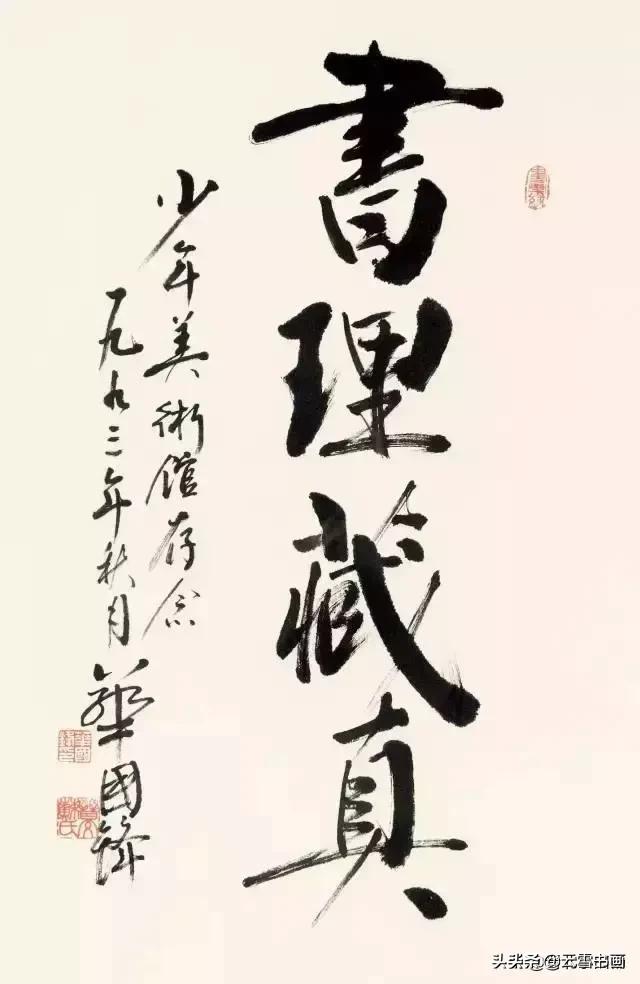 書理藏真
少年美術館存念
一九九三年秋月
華國鋒
头条 @云雪书画